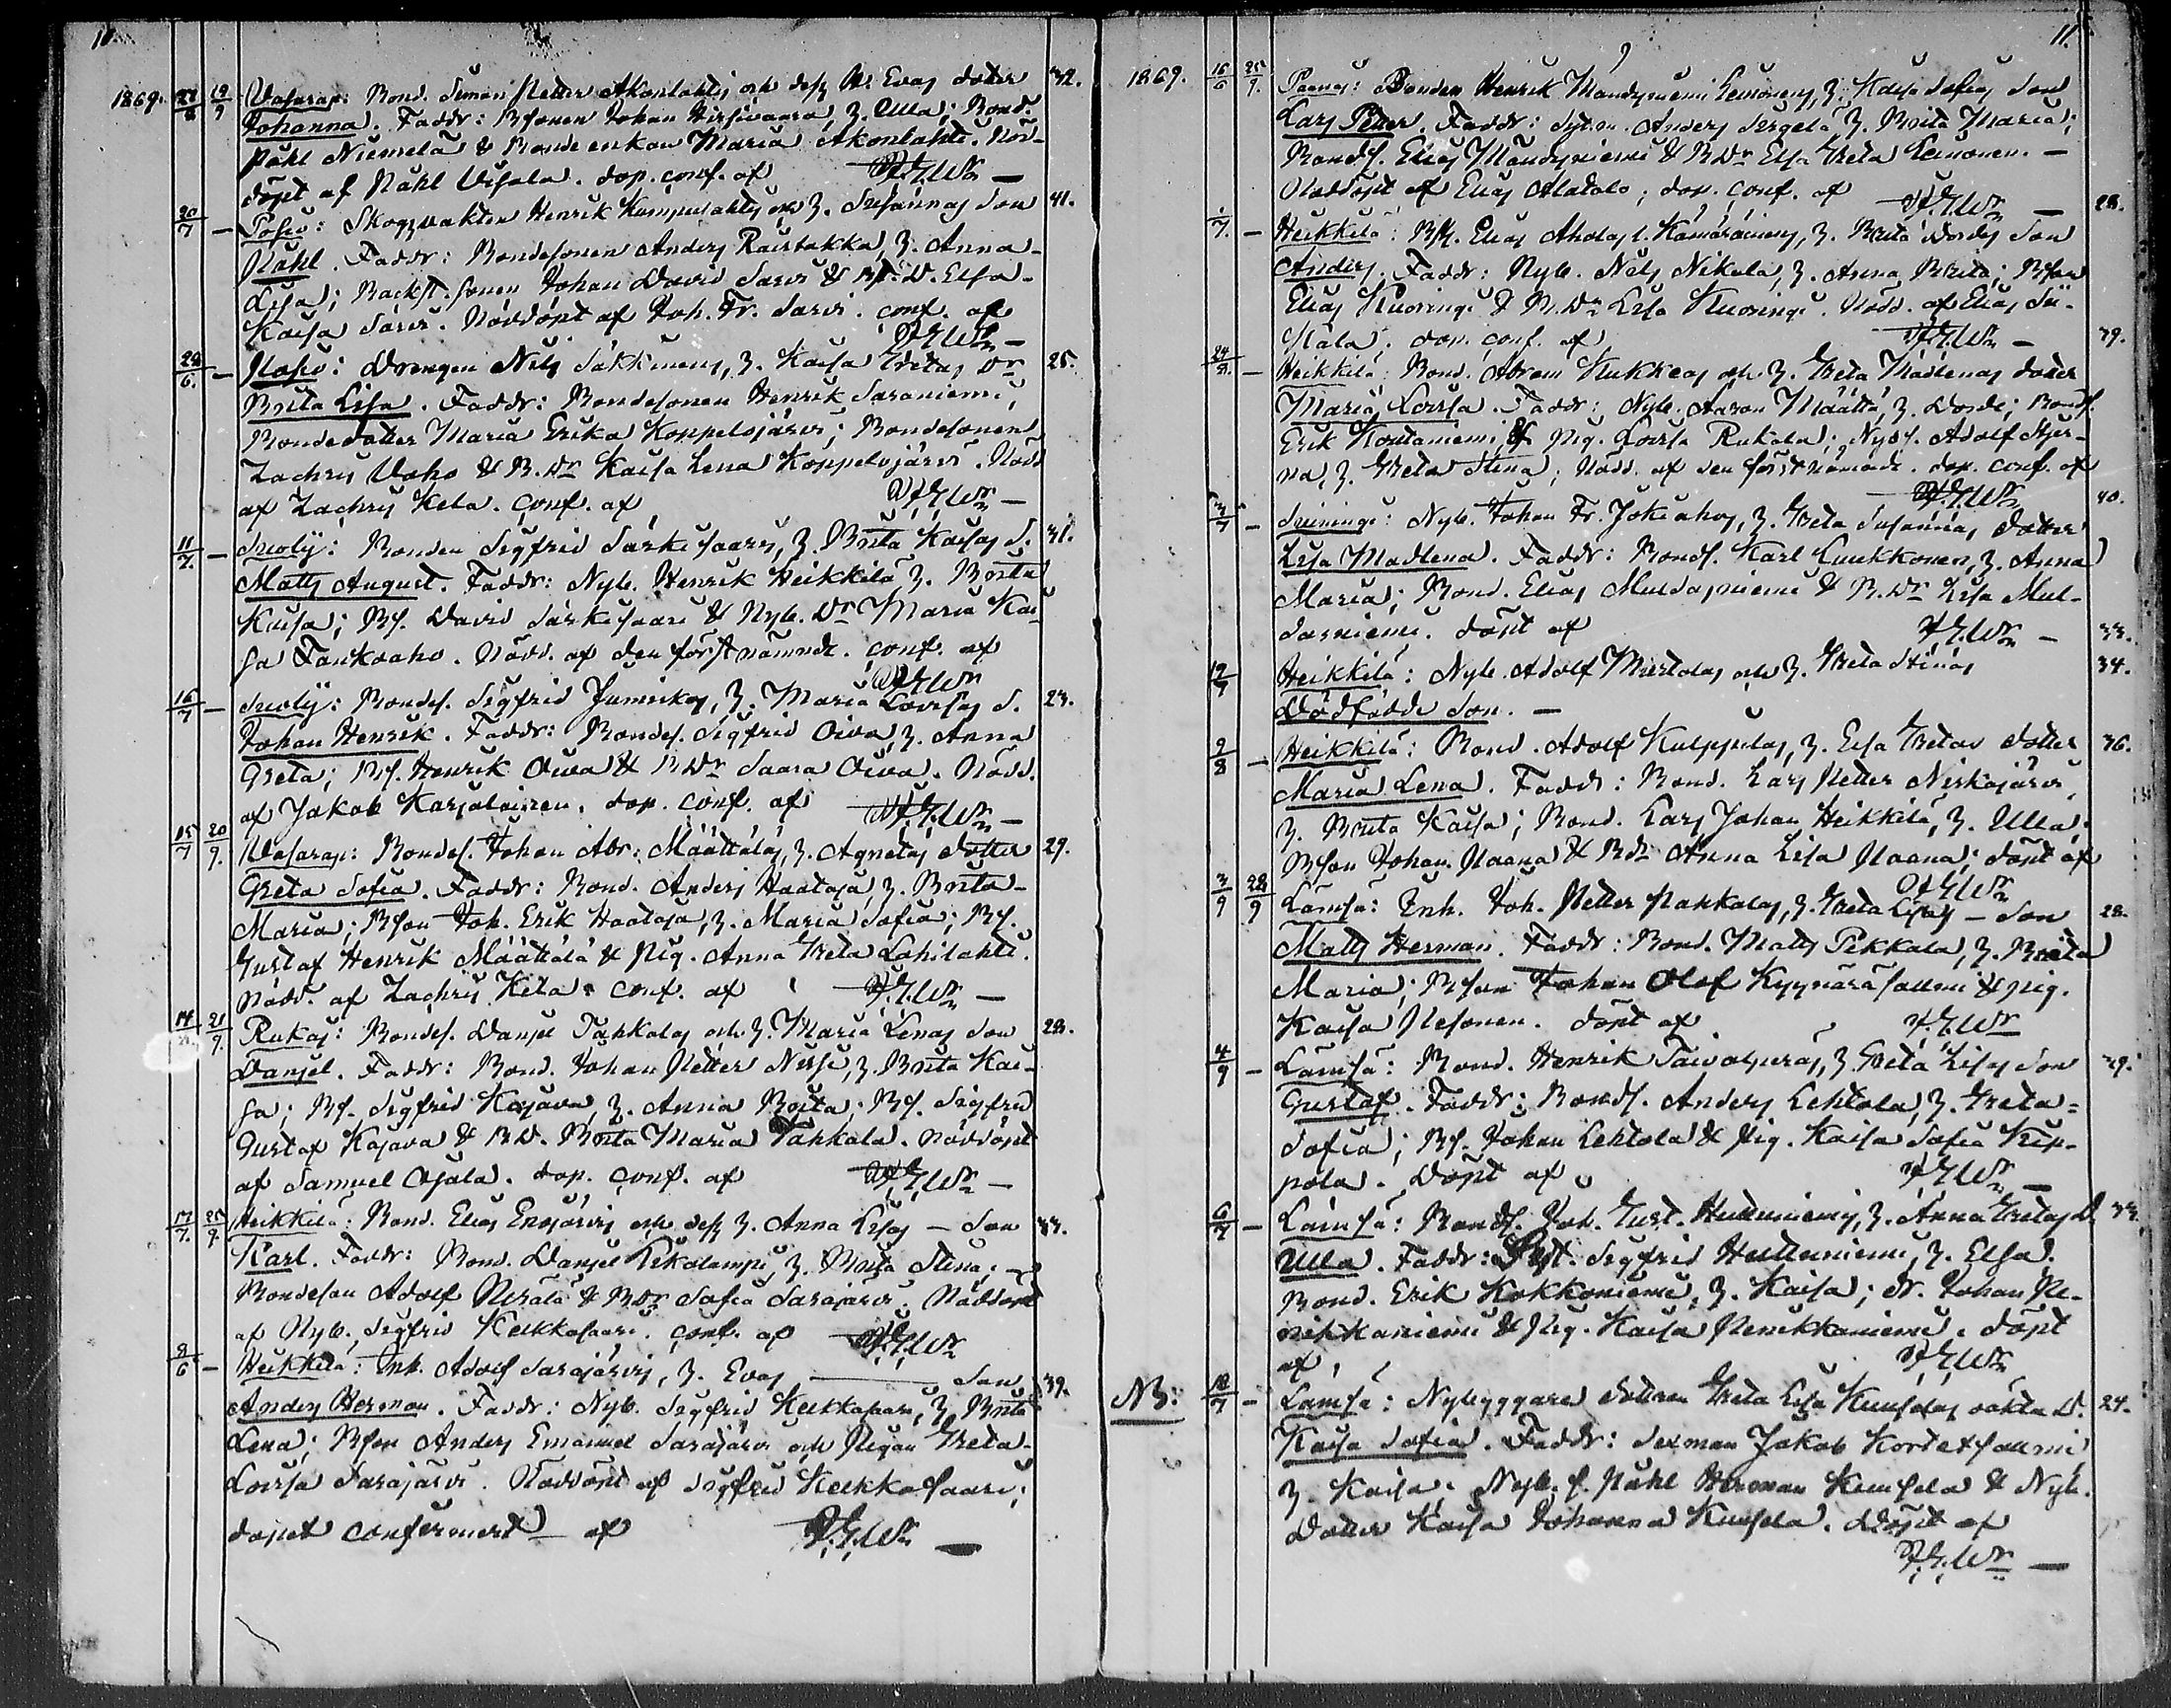 10.
1869. 27/8 19/9 Vasarap: Bond. Simon Petter Akonlahtis och dess H. Evas dotter 32.
Johanna. Faddr: Bsonen Johan Hirsivaara, h. Ulla; Bond.
Påhl Niemelä & Bonde enkan Maria Akonlahti. Nöd-
döpt af Påhl Visala. dop. conf. af
20/7 — Posio: Skogvakten Henrik Kumpulahtis och h. Susannas Son 41.
Påhl. Faddr: Bondesonen Anders Raistakka, h. Anna
Lisa; Backst. sonen Johan David Sarvi & Bst. D. Elsa
Kaisa Sarvi. Nöddöpt af Joh. Fr. Sarvi. conf. af
24/6. — Posio: Drengen Nils Säkkinens, h. Kaisa Gretas Dr 25.
Brita Lisa. Faddr: Bondesonen Henrik Saraniemi,
Bondedotter Maria Erika Koppelojärvi; Bondesonen
Zachris Vaho & B. Dr Kaisa Lena Koppelojärvi. Nödd
af Zachris Kela. conf. af
11/7. — Suolij: Bonden Sigfrid Särkisaaris, h. Brita Kaisas S. 31.
Matts August. Faddr: Nyb. Henrik Heikkilä, h. Brita
Kaisa; Bs. David Särkisaari & Nyb. Dr Maria Kai-
sa Tankoaho. Nödd. af den förstnämnde. conf. af
16/7 — Suolij: Bondes. Sigfrid Jumiskos, h. Maria Lovisas S. 23.
Johan Henrik. Faddr: Bondes. Sigfrid Oiva, h. Anna
Greta; Bs. Henrik Oiva & B Dr Saara Oiva. Nödd.
af Jakob Karjalainen. dop. conf. af
15/7 20/9. Vasarap: Bondes. Johan Abr: Määttäläs, h. Agnetas dotter 29.
Greta Sofia. Faddr: Bond. Anders Haataja, h. Brita
Maria; Bson Joh. Erik Haataja, h. Maria Sofia; Bs.
Gustaf Henrik Määttälä & Pig. Anna Greta Lahilahti.
Nödd. af Zachris Kela. conf. af
21/9. Rukaj: Bondes. Danjel Tahkolas och h. Maria Lenas Son 28.
Danjel. Faddr: Bond. Johan Petter Nissi, h. Brita Kai-
sa; Bs. Sigfrid Kajava, h. Anna Brita; Bs. Sigfrid
Gustaf Kajava & B D. Brita Maria Tahkala. Nöddöpt
af Samuel Ojala. dop. conf. af
17/7. 25/9. Heikkilä: Bond. Elias Enojärvis och dess h. Anna Lisas — Son 33.
Karl. Faddr: Bond. Danjel Pikalampi, h. Brita Stina;
Bondeson Adolf Perälä & B Dr Sofia Sarajärvi. Nöddöpt
af Nyb. Sigfrid Keikkasaari. conf. af
8/6 — Heikkilä: Inh. Adolf Sarajärvis, h. Evas — Son 39.
Anders Herman. Faddr: Nyb. Sigfrid Keikkasaari, h. Brita
Lena; Bson Anders Emanuel Sarajärvi och Pigan Greta
Lovisa Sarajärvi. Nöddöpt af Sigfrid Keikkasaari;
dopet confirmert af
11.
1869. 15/6 25/9. Paanaj: Bonden Henrik Mändyniemi Leinonens, h. Kaisa Sofias Son
Lars Petter. Faddr: Sytn. Anders Sirgelä, h. Brita Maria;
Bonds. Elias Mändyniemi & B Dr Elsa Greta Leinonen. —
Nöddöpt af Elias Alatalo; dop. conf. af
1/7. — Heikkilä: Bst. Elias Aholas l. Kämäräinens, h. Brita Dordis Son 28.
Anders. Faddr: Nyb. Nils Nikula, h. Anna Brita; Bson
Elias Kuoringi & B. Dr Lisa Kuoringi. Nödd. af Elias Su-
pala. dop. conf. af
24/8. — Heikkilä: Bond. Abram Kukkeas och h. Greta Madlenas dotter 39.
Maria Lovisa. Faddr: Nyb. Aaron Määttä, h. Dorde; Bonds.
Erik Kontaniemi & Pig. Lovisa Rukala; Nybs. Adolf Stjer-
na, h. Greta Stina; Nödd. af den förstnämnde. dop. conf. af
3/7 — Suiningi: Nyb. Johan Fr. Jokiahos, h. Greta Susannas dotter 40.
Lisa Madlena. Faddr: Bonds. Karl Luukkonen, h. Anna
Maria; Bond. Elias Muldasniemi & B. Dr Lisa Mul-
dasniemi. döpt af
Heikkilä: Nyb. Adolf Mustolas och h. Greta Stinas 34.
Dödfödde Son. —
9/8 — Heikkilä: Bond. Adolf Kulppilas, h. Elsa Gretas dotter 36.
Maria Lena. Faddr: Bond. Lars Petter Niskajärvi,
h. Brita Kaisa; Bond. Lars Johan Heikkilä, h. Ulla;
Bson Johan Naana & B Dr Anna Lisa Naana; döpt af
3/9 28/9 Lämsä: Inh. Joh. Petter Pakkalas, h. Greta Lisas — Son 28.
Matts Herman. Faddr: Bond. Matts Pekkala, h. Brita
Maria; Bson Johan Olof Kyynäräsalmi & pig.
Kaisa Pesonen. döpt af
4/9 — Lämsä: Bond. Henrik Taivalperäs, h. Greta Lisas Son 29.
Gustaf. Faddr: Bonds. Anders Lehtola, h. Greta
Sofia; Bs. Johan Lehtola & Pig. Kaisa Sofia Kup-
pola. Döpt af
6/7 — Lämsä: Bonds. Joh. Gust. Huttuniemis, h. Anna Gretas D.
Ulla. Faddr: Sigfrid Huttuniemi, h. Elsa.
Bond. Erik Kokkoniemi, h. Kaisa; Dr. Johan Pe-
nikkaniemi & Pig. Kaisa Penikkaniemi. döpt
af
NB: 12/7 — Lämsä: Nybyggare dottren Greta Lisa Kuuselas oäkta D. 24.
Kaisa Sofia. Faddr: Sexman Jakob Kortesalmi
h. Kaisa; Nyb. s. Påhl Herman Kuusela & Nyb.
Dotter Kaisa Johanna Kuusela. Döpt af